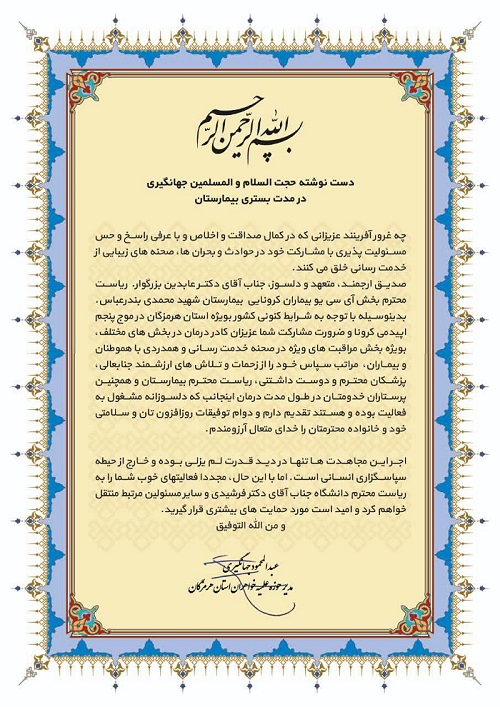 بسم الله الرحمن الرحیم
دست نوشته حجت السلام و المسلمین جهانگیری
در مدت بستری بیمارستان
چه غرور آفرینند عزیزانی که در کمال صداقت و اخلاص و با عرقی راسخ و حس
مسئولیت پذیری با مشارکت خود در حوادث و بحران ها، صحنه های زیبایی از
خدمت رسانی خلق می کنند.
صدیق ارجمند، متعهد و دلسوز، جناب آقای دکتر عابدین بزرگوار. ریاست
محترم بخش آی سی یو بیماران کرونایی بیمارستان شهید محمدی بندرعباس.
بدینوسیله با توجه به شرایط کنونی کشور بویژه استان هرمزگان در موج پنجم
اپیدمی کرونا و ضرورت مشارکت شما عزیزان کادر درمان در بخش های مختلف ،
بویژه بخش مراقبت های ویژه در صحنه خدمت رسانی و همدردی با هموطنان
و بیماران، مراتب سپاس خود را از زحمات و تلاش های ارزشمند جنابعالی،
پزشکان محترم و دوست داشتنی، ریاست محترم بیمارستان و همچنین
پرستاران خدومتان در طول مدت درمان اینجانب که دلسوزانه مشغول به
فعالیت بوده و هستند تقدیم دارم و دوام توفیقات روزافزون تان و سلامتی
خود و خانواده محترمتان را خدای متعال آرزومندم.
اجر این مجاهدت ها تنها در دید قدرت لم یزلی بوده و خارج از حیطه
سپاسگزاری انسانی است. اما با این حال، مجددا فعالیتهای خوب شما را به
ریاست محترم دانشگاه جناب آقای دکتر فرشیدی و سایر مسئولین مرتبط منتقل
خواهم کرد و امید است مورد حمایت های بیشتری قرار گیرید.
و من الله التوفیق
عبدالمحمود جهانگیری
مدیر حوزه علمیه خواهران استان هرمزگان